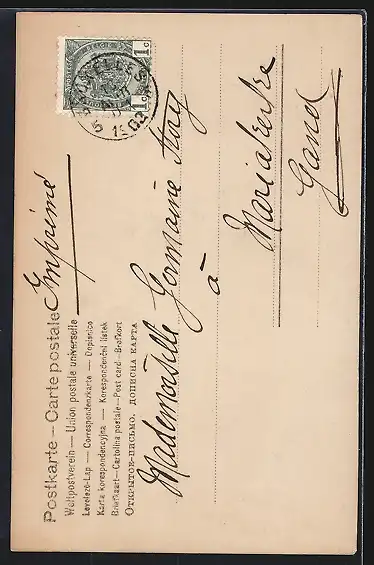 Postkarte — Carte postale
Weltpostverein — Union postale universelle
Levelező-Lap — Correspondenzkarte — Dopisnice
Karta korespondencyjna — Korespondenční listek
Briefkaart — Cartolina postale — Post card — Brefkort
Открытое-письмо. дописна карта
Imprimé
1c 1c
BRUXELLES
5
1902
Mademoiselle Germaine
à
Mariakerke
Gand